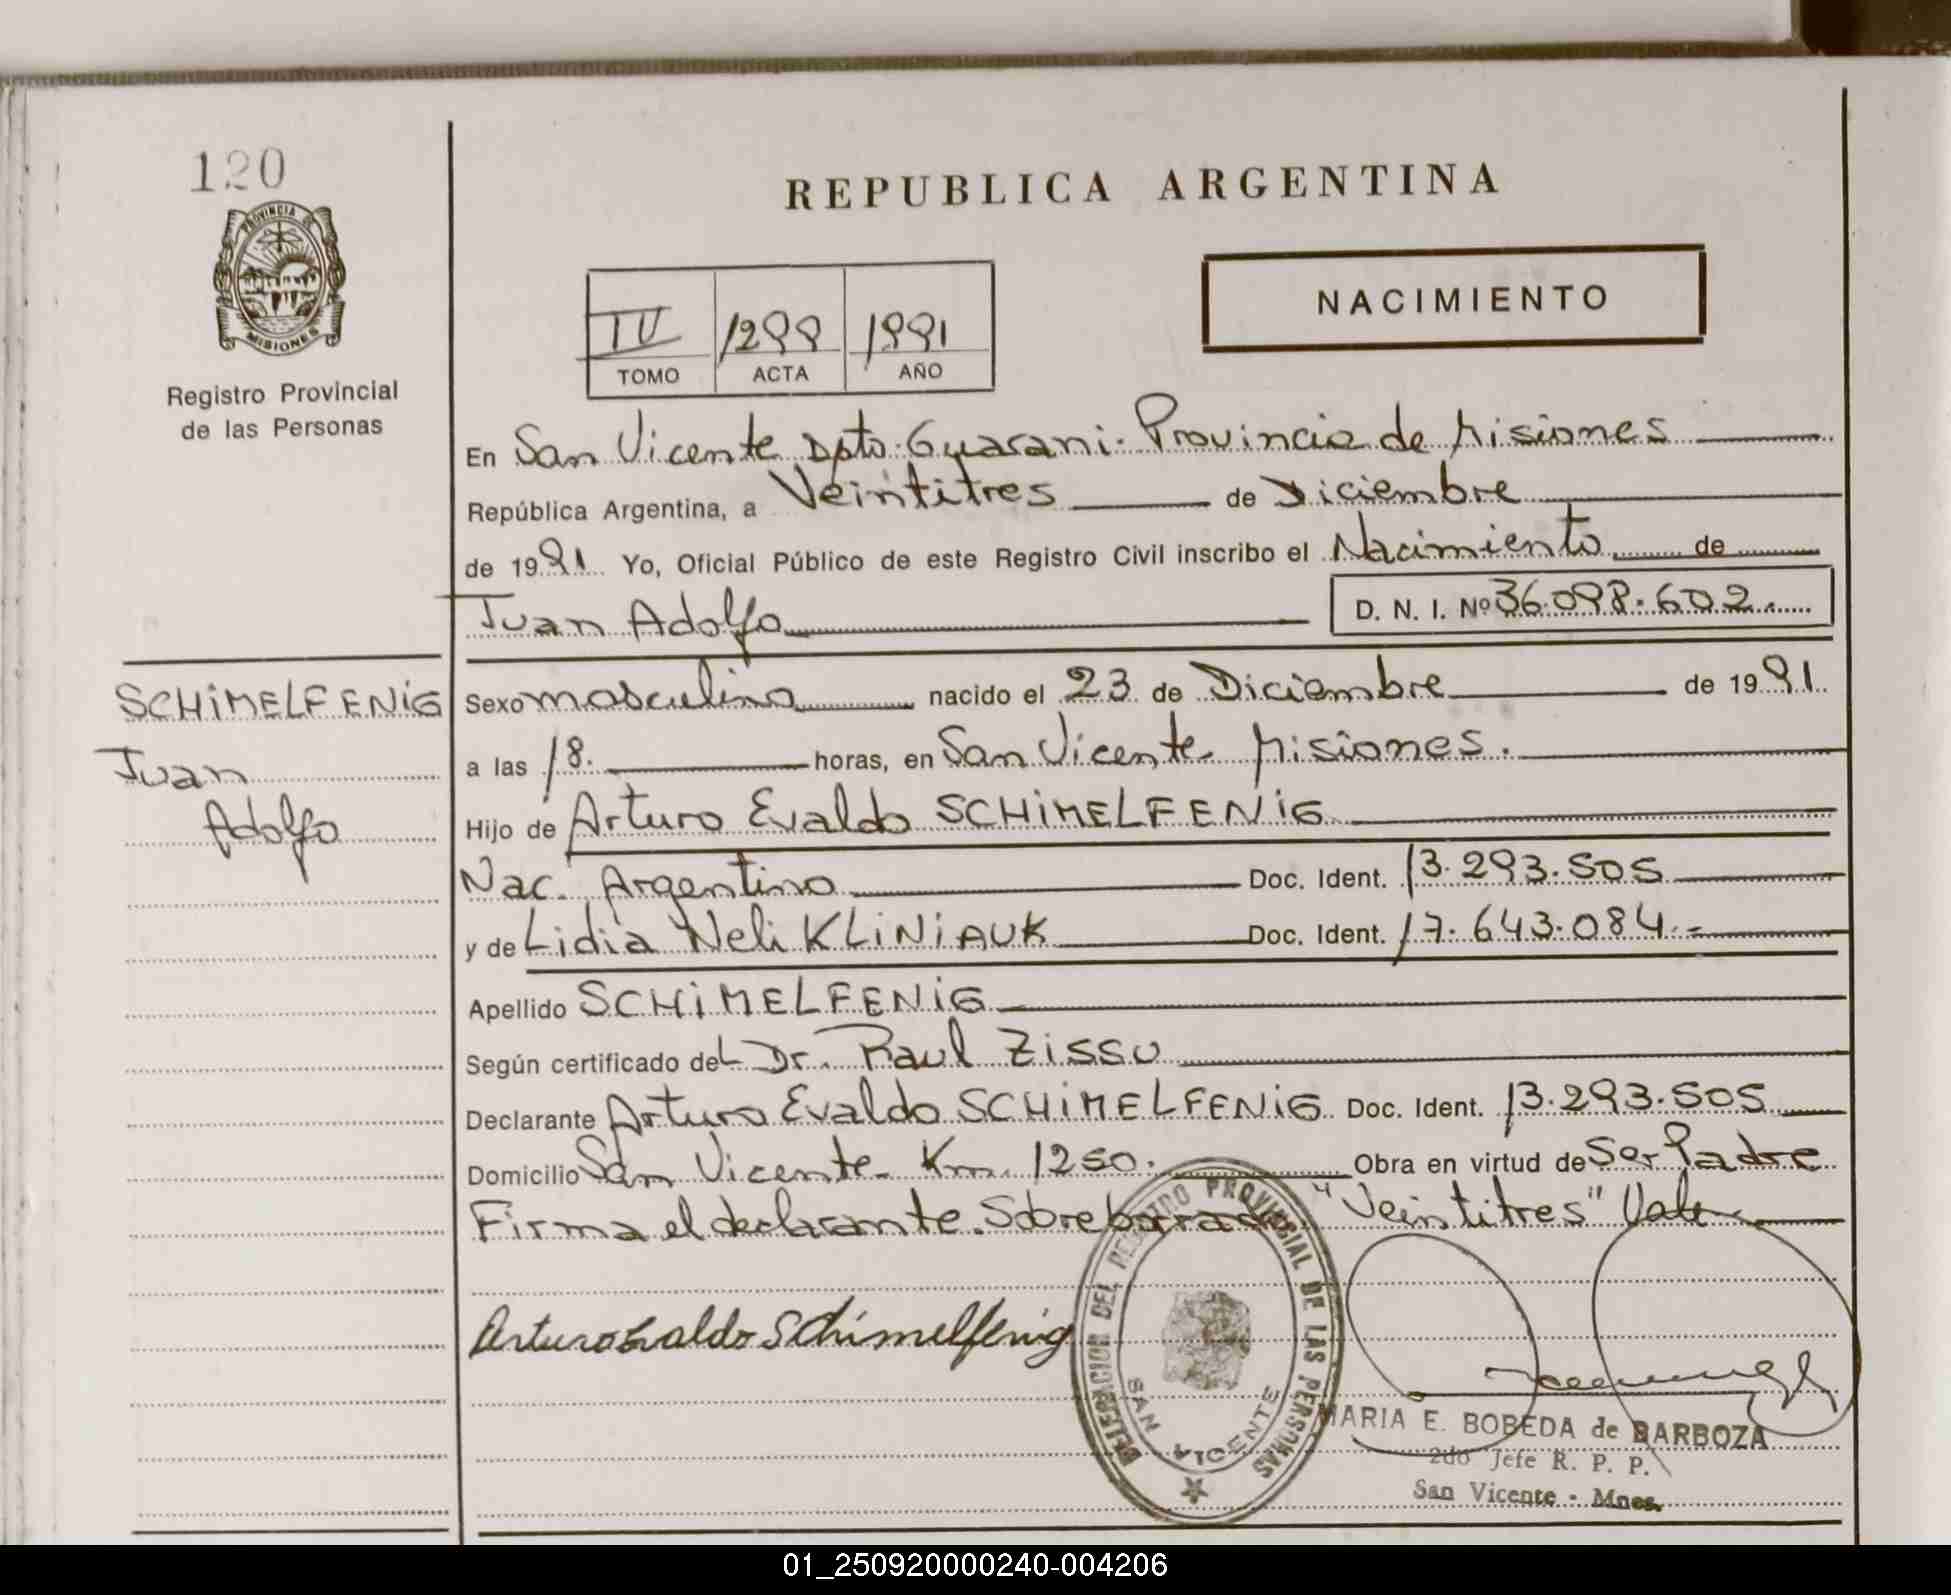 120
PROVINCIA DE
MISIONES
Registro Provincial
de las Personas
REPUBLICA ARGENTINA
NACIMIENTO
IV 1299 1991
TOMO ACTA AÑO
En San Vicente Dpto. Guarani. Provincia de Misiones
República Argentina, a Veintitres de Diciembre
de 1991 Yo, Oficial Público de este Registro Civil inscribo el Nacimiento de
Juan Adolfo D. N. I. Nº 36.098.602
SCHiMELFENiG
Juan
Adolfo
Sexo masculino nacido el 23 de Diciembre de 1991
a las 18. horas, en San Vicente Misiones.
Hijo de Arturo Evaldo SCHiMELFENiG
Nac. Argentino Doc. Ident. 13.293.505
y de Lidia Neli KLiNiAUK Doc. Ident. 17.643.084.-
Apellido SCHiMELFENiG
Según certificado del Dr. Raul Zissu
Declarante Arturo Evaldo SCHiMELFENiG Doc. Ident. 13.293.505
Domicilio San Vicente Km. 1250. Obra en virtud de Ser Padre
Firma el declarante. Sobreborrado "Veintitres" Vale
Arturo Evaldo Schimelfenig
DELEGACION DEL REGISTRO PROVINCIAL DE LAS PERSONAS
SAN VICENTE
MARIA E. BOBEDA de BARBOZA
2do Jefe R. P. P.
San Vicente - Mnes.
01_250920000240-004206